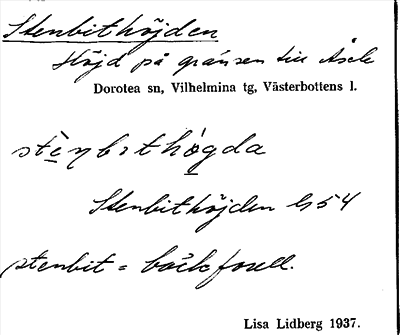 Stenbithöjden
Höjd på gränsen till Åsele
Dorotea sn, Vilhelmina tg, Västerbottens l.
stenbithögda
Stenbithöjden G 54
stenbit = bäckforell.
Lisa Lidberg 1937.